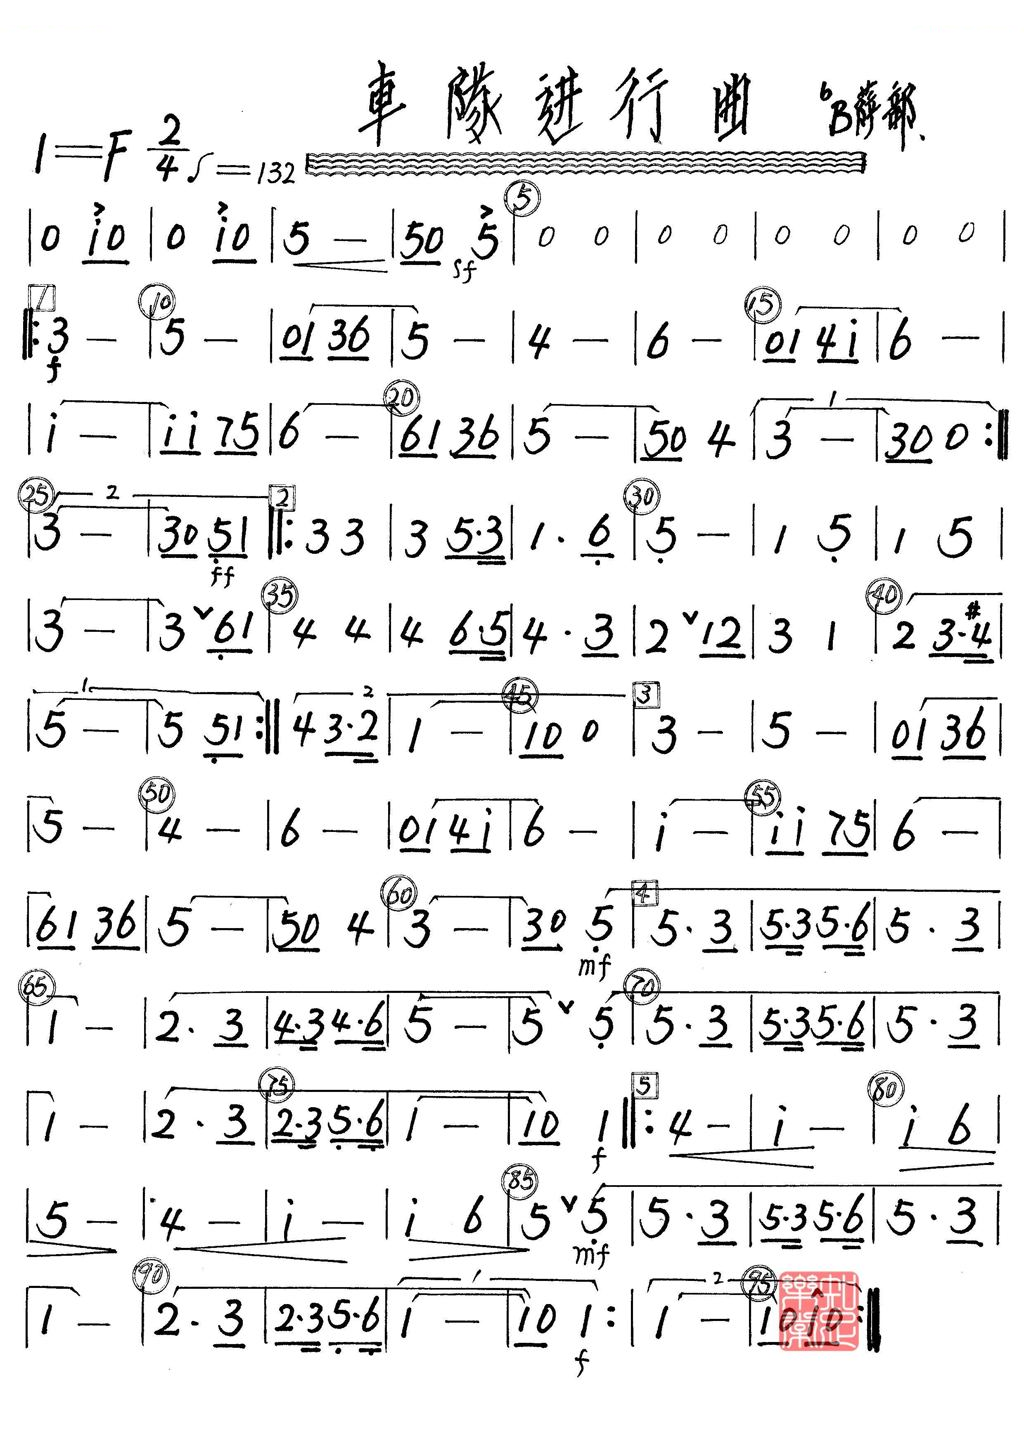 車隊进行曲 ♭B薛部.
1=F 2/4 ♩=132
| 0 i0 | 0 i0 | 5 – | 50 5 | 0 0 | 0 0 | 0 0 | 0 0 |
sf 5
1 10 15
‖: 3 – | 5 – | 01 36 | 5 – | 4 – | 6 – | 01 4i | 6 – |
f
20 1
| i – | ii 75 | 6 – | 61 36 | 5 – | 50 4 | 3 – | 30 0 :‖
25 2 2 30
| 3 – | 30 51 ‖: 3 3 | 3 5·3 | 1· 6 | 5 – | 1 5 | 1 5 |
ff
35 40
| 3 – | 3 ∨ 61 | 4 4 | 4 6·5 | 4· 3 | 2 ∨ 12 | 3 1 | 2 3·#4 |
1 2 45 3
| 5 – | 5 51 :‖ 4 3·2 | 1 – | 10 0 | 3 – | 5 – | 01 36 |
50 55
| 5 – | 4 – | 6 – | 01 4i | 6 – | i – | ii 75 | 6 – |
60 4
| 61 36 | 5 – | 50 4 | 3 – | 30 5 | 5· 3 | 5·3 5·6 | 5· 3 |
mf
65 70
| 1 – | 2· 3 | 4·3 4·6 | 5 – | 5 ∨ 5 | 5· 3 | 5·3 5·6 | 5· 3 |
75 5 80
| 1 – | 2· 3 | 2·3 5·6 | 1 – | 10 1 ‖: 4 – | i – | i 6 |
f
85
| 5 – | 4 – | i – | i 6 | 5 ∨ 5 | 5· 3 | 5·3 5·6 | 5· 3 |
mf
90 1 2 95
| 1 – | 2· 3 | 2·3 5·6 | 1 – | 10 1 : | 1 – | 10 i0 :‖
f